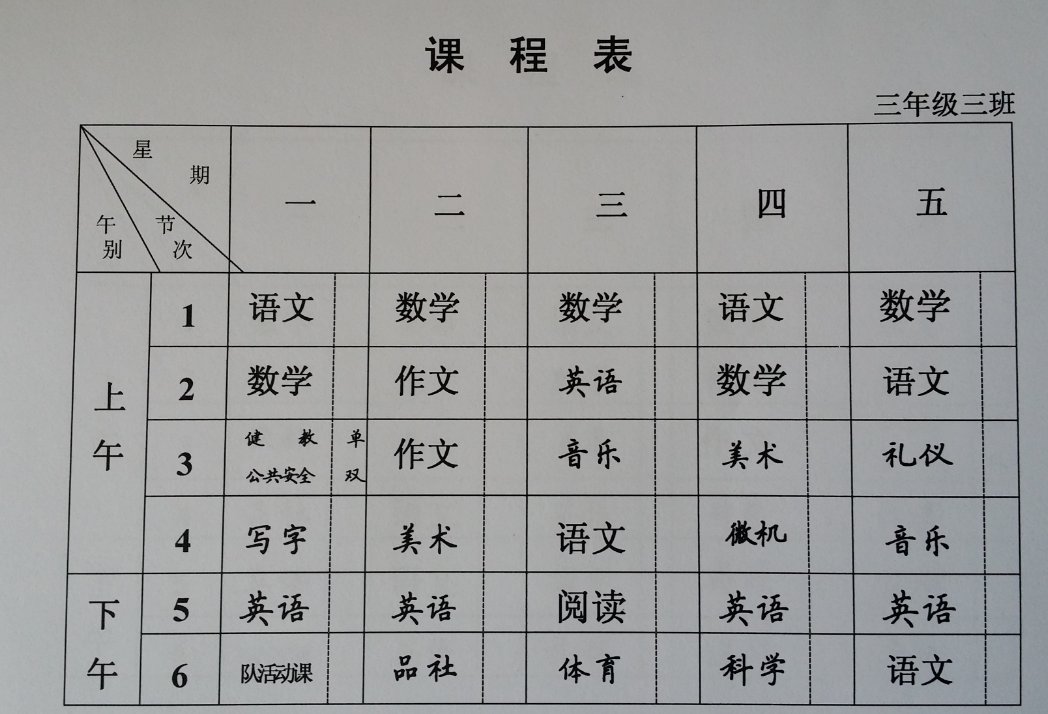 课 程 表
三年级三班
星期 节次 午别 一 二 三 四 五
上午 1 语文 数学 数学 语文 数学
2 数学 作文 英语 数学 语文
3 健教 单 作文 音乐 美术 礼仪
公共安全 双
4 写字 美术 语文 微机 音乐
下午 5 英语 英语 阅读 英语 英语
6 队活动课 品社 体育 科学 语文